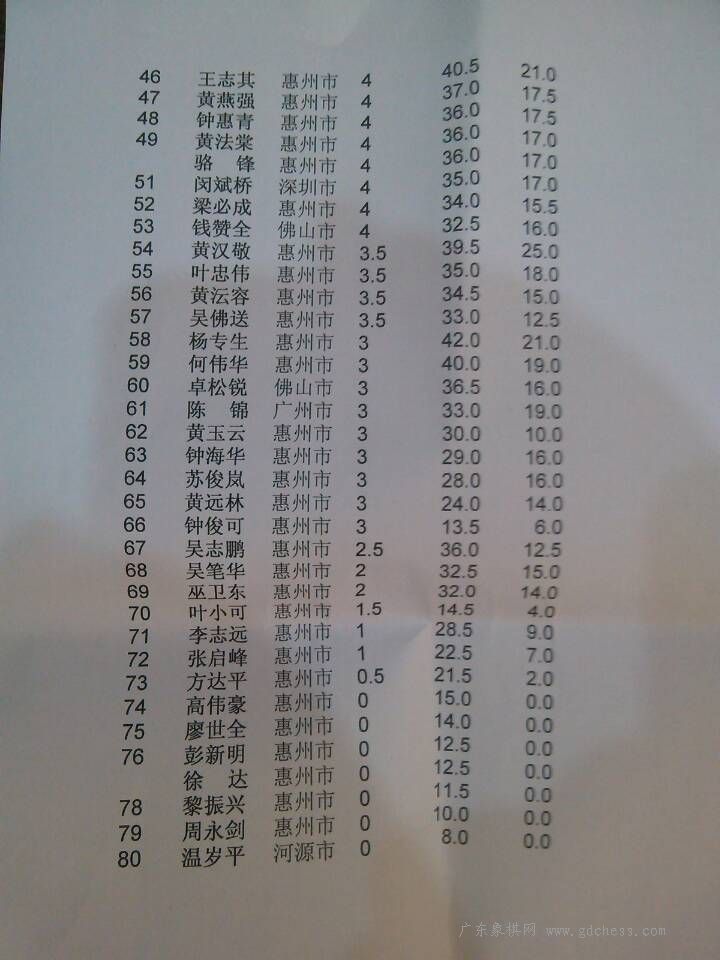 46 王志其 惠州市 4 40.5 21.0
47 黄燕强 惠州市 4 37.0 17.5
48 钟惠青 惠州市 4 36.0 17.5
49 黄法棠 惠州市 4 36.0 17.0
骆 锋 惠州市 4 36.0 17.0
51 闵斌桥 深圳市 4 35.0 17.0
52 梁必成 惠州市 4 34.0 15.5
53 钱赞全 佛山市 4 32.5 16.0
54 黄汉敬 惠州市 3.5 39.5 25.0
55 叶忠伟 惠州市 3.5 35.0 18.0
56 黄沄容 惠州市 3.5 34.5 15.0
57 吴佛送 惠州市 3.5 33.0 12.5
58 杨专生 惠州市 3 42.0 21.0
59 何伟华 惠州市 3 40.0 19.0
60 卓松锐 佛山市 3 36.5 16.0
61 陈 锦 广州市 3 33.0 19.0
62 黄玉云 惠州市 3 30.0 10.0
63 钟海华 惠州市 3 29.0 16.0
64 苏俊岚 惠州市 3 28.0 16.0
65 黄远林 惠州市 3 24.0 14.0
66 钟俊可 惠州市 3 13.5 6.0
67 吴志鹏 惠州市 2.5 36.0 12.5
68 吴笔华 惠州市 2 32.5 15.0
69 巫卫东 惠州市 2 32.0 14.0
70 叶小可 惠州市 1.5 14.5 4.0
71 李志远 惠州市 1 28.5 9.0
72 张启峰 惠州市 1 22.5 7.0
73 方达平 惠州市 0.5 21.5 2.0
74 高伟豪 惠州市 0 15.0 0.0
75 廖世全 惠州市 0 14.0 0.0
76 彭新明 惠州市 0 12.5 0.0
徐 达 惠州市 0 12.5 0.0
78 黎振兴 惠州市 0 11.5 0.0
79 周永剑 惠州市 0 10.0 0.0
80 温岁平 河源市 0 8.0 0.0
广东象棋网 www.gdchess.com